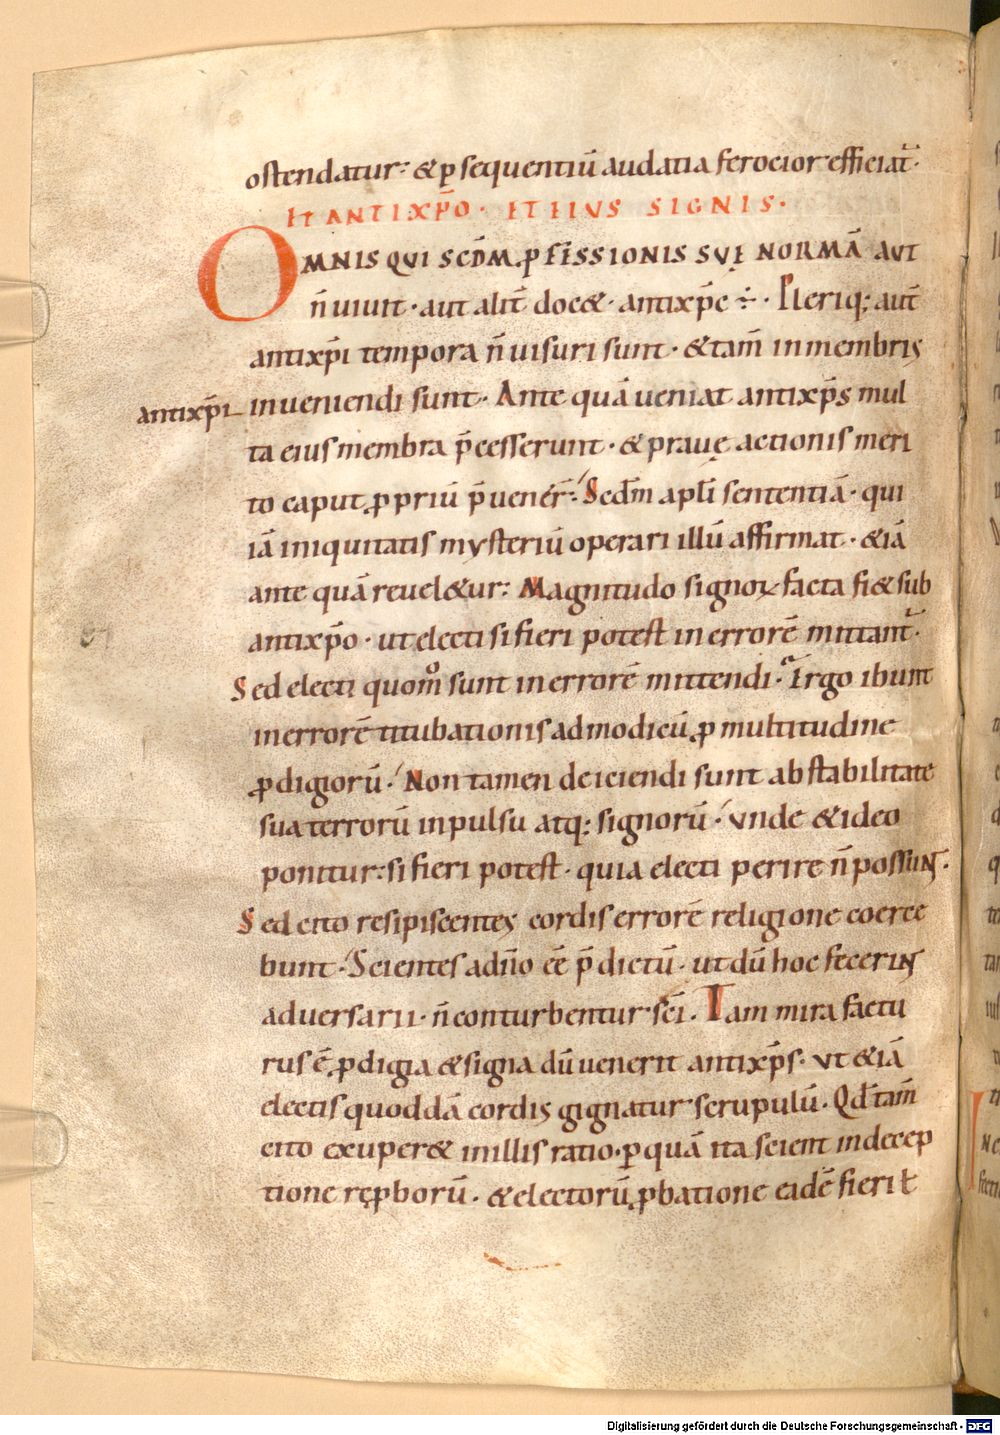 ostendatur· & ꝑsequentiū audatia ferocior efficiat᷑·
ET ANTIXP̄O· ET EIUS SIGNIS·
OMNIS QUI SCDM̄ ꝓFESSIONIS SUE NORMĀ AUT
n̄ uiuit· aut alit̄ doc&· antixp̄c ÷· Pleriq; aut̄
antixp̄i tempora n̄ uisuri sunt· &tam̄ in membris
antixp̄i
inueniendi sunt· Ante quā ueniat antixp̄s mul
ta eius membra p̄cesserunt· & prauę actionis meri
to caput ꝓpriū p̄uener̄· Scdm̄ apl̄i sententiā· qui
iā iniquitatis mysteriū operari illū affirmat· &iā
ante quā reuel&ur· Magnitudo signoꝝ facta fi& sub
antixp̄o· ut electi si fieri potest in errorē mittant᷑·
Sed electi quom̊ sunt in errorē mittendi· Ergo ibunt
in errorē titubationis ad modicū ꝓ multitudine
ꝓdigiorū· Non tamen deiciendi sunt ab stabilitate
sua terrorū inpulsu atq; signorū· Unde & ideo
ponitur· si fieri potest· quia electi perire n̄ possunt·
Sed cito resipiscentes cordis errorē religione coerce
bunt· Scientes a dn̄o ēē p̄dictū· ut dū hoc fecerint
adversarii· n̄ conturbentur sc̄i· Tam mira factu
rus ē ꝓdigia & signa dū uenerit antixp̄s· ut &iā
electis quoddā cordis gignatur scrupulū· Qd̄ tam̄
cito exuper& in illis ratio· ꝑ quā ita scient in decep
tione reꝓborū· & electorū ꝓbatione eadē fieri ł
Digitalisierung gefördert durch die Deutsche Forschungsgemeinschaft - DFG